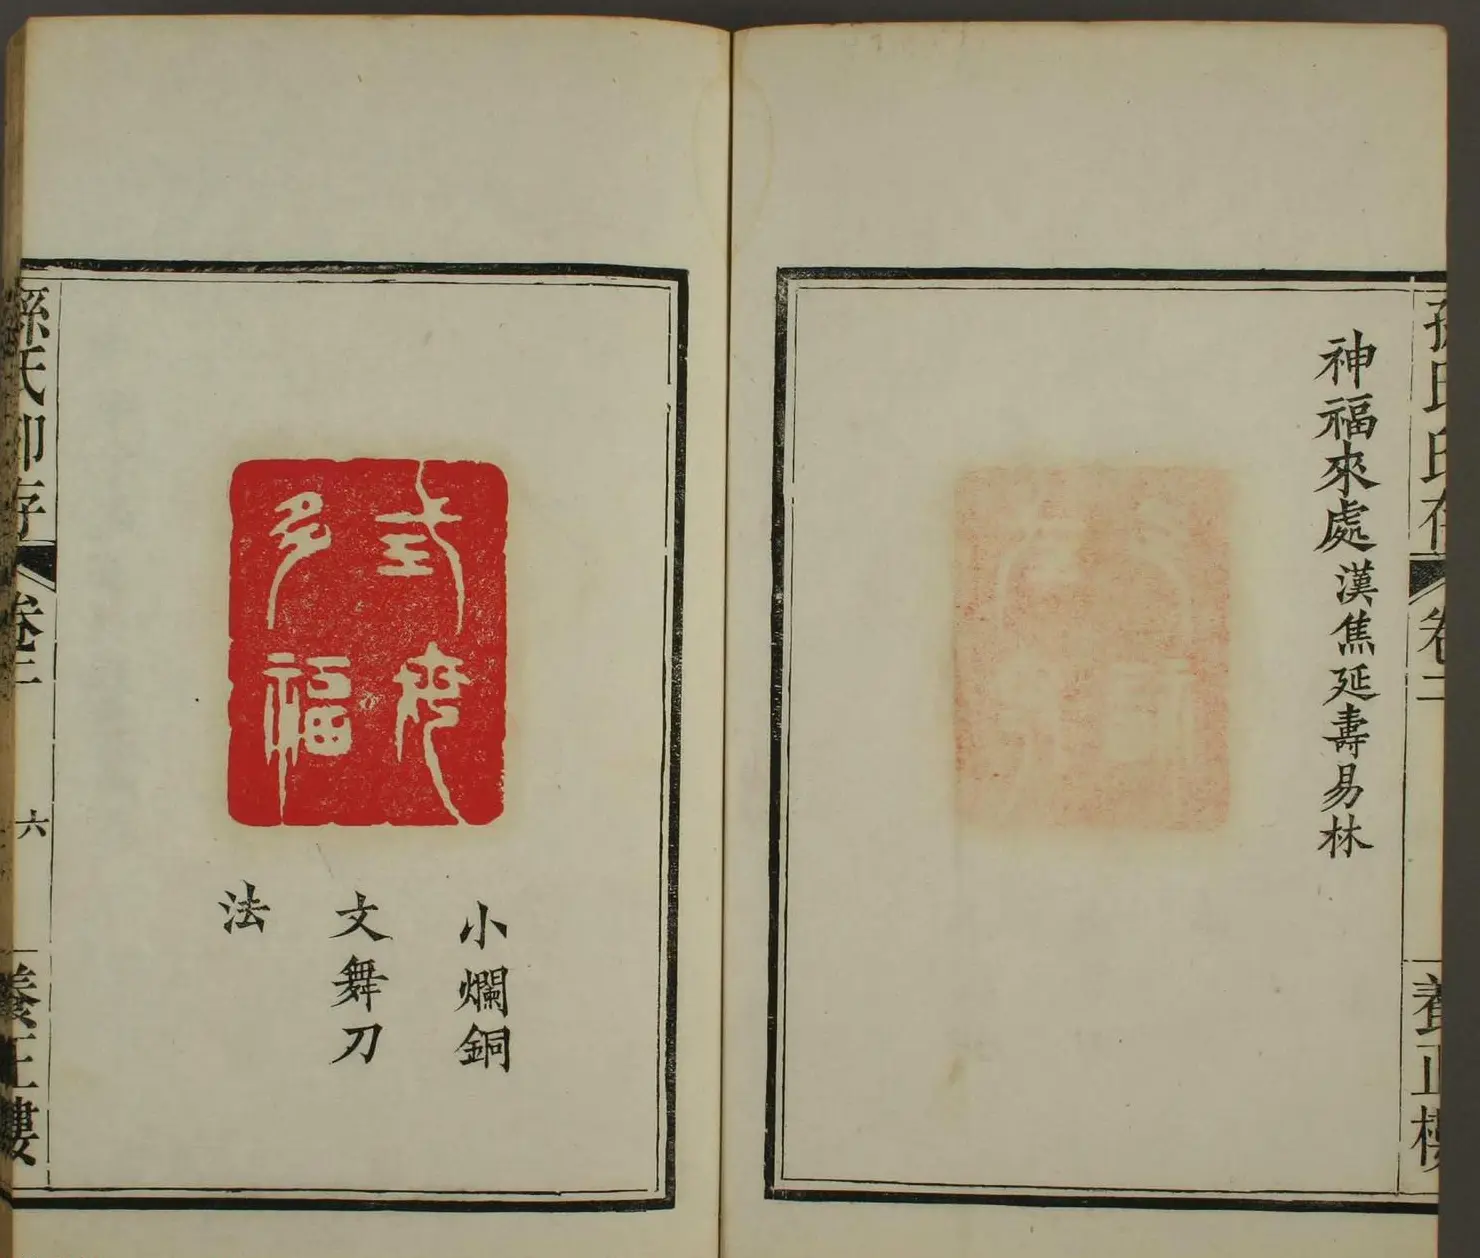 孫氏印存
卷二
養正樓
神福來處漢焦延壽易林
式
多福
小爛銅
文舞刀
法
孫氏印存
卷二
六
養正樓